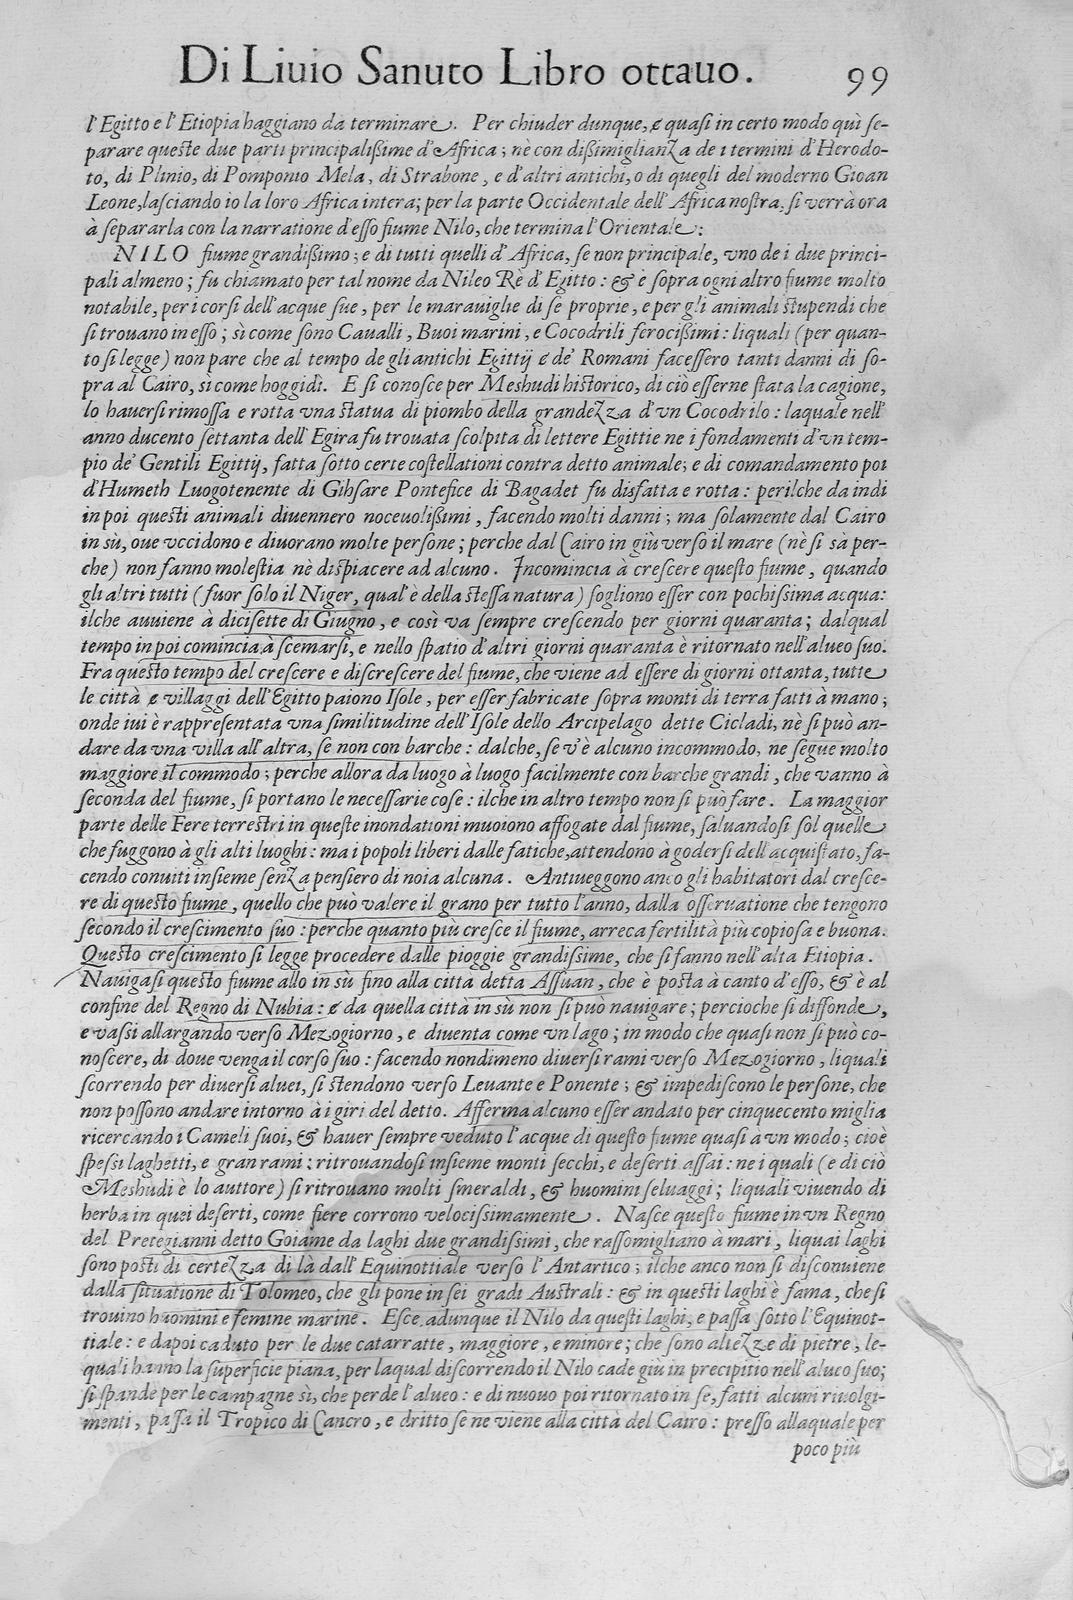 Di Liuio Sanuto Libro ottauo. 99
l'Egitto e l'Etiopia haggiano da terminare. Per chiuder dunque, e quasi in certo modo quì se-
parare queste due parti principalißime d'Africa; nè con dißimiglianza de i termini d'Herodo-
to, di Plinio, di Pomponio Mela, di Strabone, e d'altri antichi, o di quegli del moderno Gioan
Leone, lasciando io la loro Africa intera; per la parte Occidentale dell'Africa nostra, si verrà ora
à separarla con la narratione d'esso fiume Nilo, che termina l'Orientale:
NILO fiume grandißimo; e di tutti quelli d'Africa, se non principale, vno de i due princi-
pali almeno; fu chiamato per tal nome da Nileo Rè d'Egitto: & è sopra ogni altro fiume molto
notabile, per i corsi dell'acque sue, per le marauiglie di se proprie, e per gli animali stupendi che
si trouano in esso; sì come sono Caualli, Buoi marini, e Cocodrili ferocißimi: liquali (per quan-
to si legge) non pare che al tempo de gli antichi Egittij e de' Romani facessero tanti danni di so-
pra al Cairo, sì come hoggidì. E si conosce per Meshudi historico, di ciò esserne stata la cagione,
lo hauersi rimossa e rotta vna statua di piombo della grandezza d'vn Cocodrilo: laquale nell'
anno ducento settanta dell'Egira fu trouata scolpita di lettere Egittie ne i fondamenti d'vn tem-
pio de' Gentili Egittij, fatta sotto certe costellationi contra detto animale; e di comandamento poi
d'Humeth Luogotenente di Gihsare Pontefice di Bagadet fu disfatta e rotta: perilche da indi
in poi questi animali diuennero noceuolißimi, facendo molti danni; ma solamente dal Cairo
in sù, oue vccidono e diuorano molte persone; perche dal Cairo in giù verso il mare (nè si sà per-
che) non fanno molestia nè dispiacere ad alcuno. Incomincia à crescere questo fiume, quando
gli altri tutti (fuor solo il Niger, qual'è della stessa natura) sogliono esser con pochissima acqua:
ilche auuiene à dicisette di Giugno, e così va sempre crescendo per giorni quaranta; dalqual
tempo in poi comincia à scemarsi, e nello spatio d'altri giorni quaranta è ritornato nell'alueo suo.
Fra questo tempo del crescere e discrescere del fiume, che viene ad essere di giorni ottanta, tutte
le città e villaggi dell'Egitto paiono Isole, per esser fabricate sopra monti di terra fatti à mano;
onde iui è rappresentata vna similitudine dell'Isole dello Arcipelago dette Cicladi, nè si può an-
dare da vna villa all'altra, se non con barche: dalche, se v'è alcuno incommodo, ne segue molto
maggiore il commodo; perche allora da luogo à luogo facilmente con barche grandi, che vanno à
seconda del fiume, si portano le necessarie cose: ilche in altro tempo non si può fare. La maggior
parte delle Fere terrestri in queste inondationi muoiono affogate dal fiume, saluandosi sol quelle
che fuggono à gli alti luoghi: ma i popoli liberi dalle fatiche, attendono à godersi dell'acquistato, fa-
cendo conuiti insieme senza pensiero di noia alcuna. Antiueggono anco gli habitatori dal cresce-
re di questo fiume, quello che può valere il grano per tutto l'anno, dalla osseruatione che tengono
secondo il crescimento suo: perche quanto più cresce il fiume, arreca fertilità più copiosa e buona.
Questo crescimento si legge procedere dalle pioggie grandissime, che si fanno nell'alta Etiopia.
Nauigasi questo fiume allo in sù fino alla città detta Assuan, che è posta à canto d'esso, & è al
confine del Regno di Nubia: e da quella città in sù non si può nauigare; percioche si diffonde,
e vassi allargando verso Mezogiorno, e diuenta come vn lago; in modo che quasi non si può co-
noscere, di doue venga il corso suo: facendo nondimeno diuersi rami verso Mezogiorno, liquali
scorrendo per diuersi aluei, si stendono verso Leuante e Ponente; & impediscono le persone, che
non possono andare intorno à i giri del detto. Afferma alcuno esser andato per cinquecento miglia
ricercando i Cameli suoi, & hauer sempre veduto l'acque di questo fiume quasi a vn modo; cioè
spessi laghetti, e gran rami: ritrouandosi insieme monti secchi, e deserti assai: ne i quali (e di ciò
Meshudi è lo auttore) si ritrouano molti smeraldi, & huomini seluaggi; liquali viuendo di
herba in quei deserti, come fiere corrono velocissimamente. Nasce questo fiume in vn Regno
del Pretegianni detto Goiame da laghi due grandissimi, che rassomigliano à mari, liquai laghi
sono posti di certezza di là dall'Equinottiale verso l'Antartico; ilche anco non si disconuiene
dalla situatione di Tolomeo, che gli pone in sei gradi Australi: & in questi laghi è fama, che si
trouino huomini e femine marine. Esce adunque il Nilo da questi laghi, e passa sotto l'Equinot-
tiale: e dapoi caduto per le due catarratte, maggiore, e minore; che sono altezze di pietre, le-
quali hanno la superficie piana, per laqual discorrendo il Nilo cade giù in precipitio nell'alueo suo;
si spande per le campagne sì, che perde l'alueo: e di nuouo poi ritornato in se, fatti alcuni riuolgi-
menti, passa il Tropico di Cancro, e dritto se ne viene alla città del Cairo: presso allaquale per
poco più